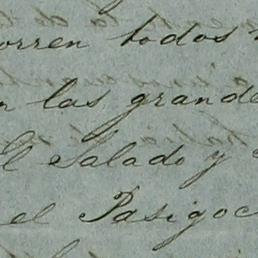 orren todos
n las grande
El Salado y
el Pasigoc